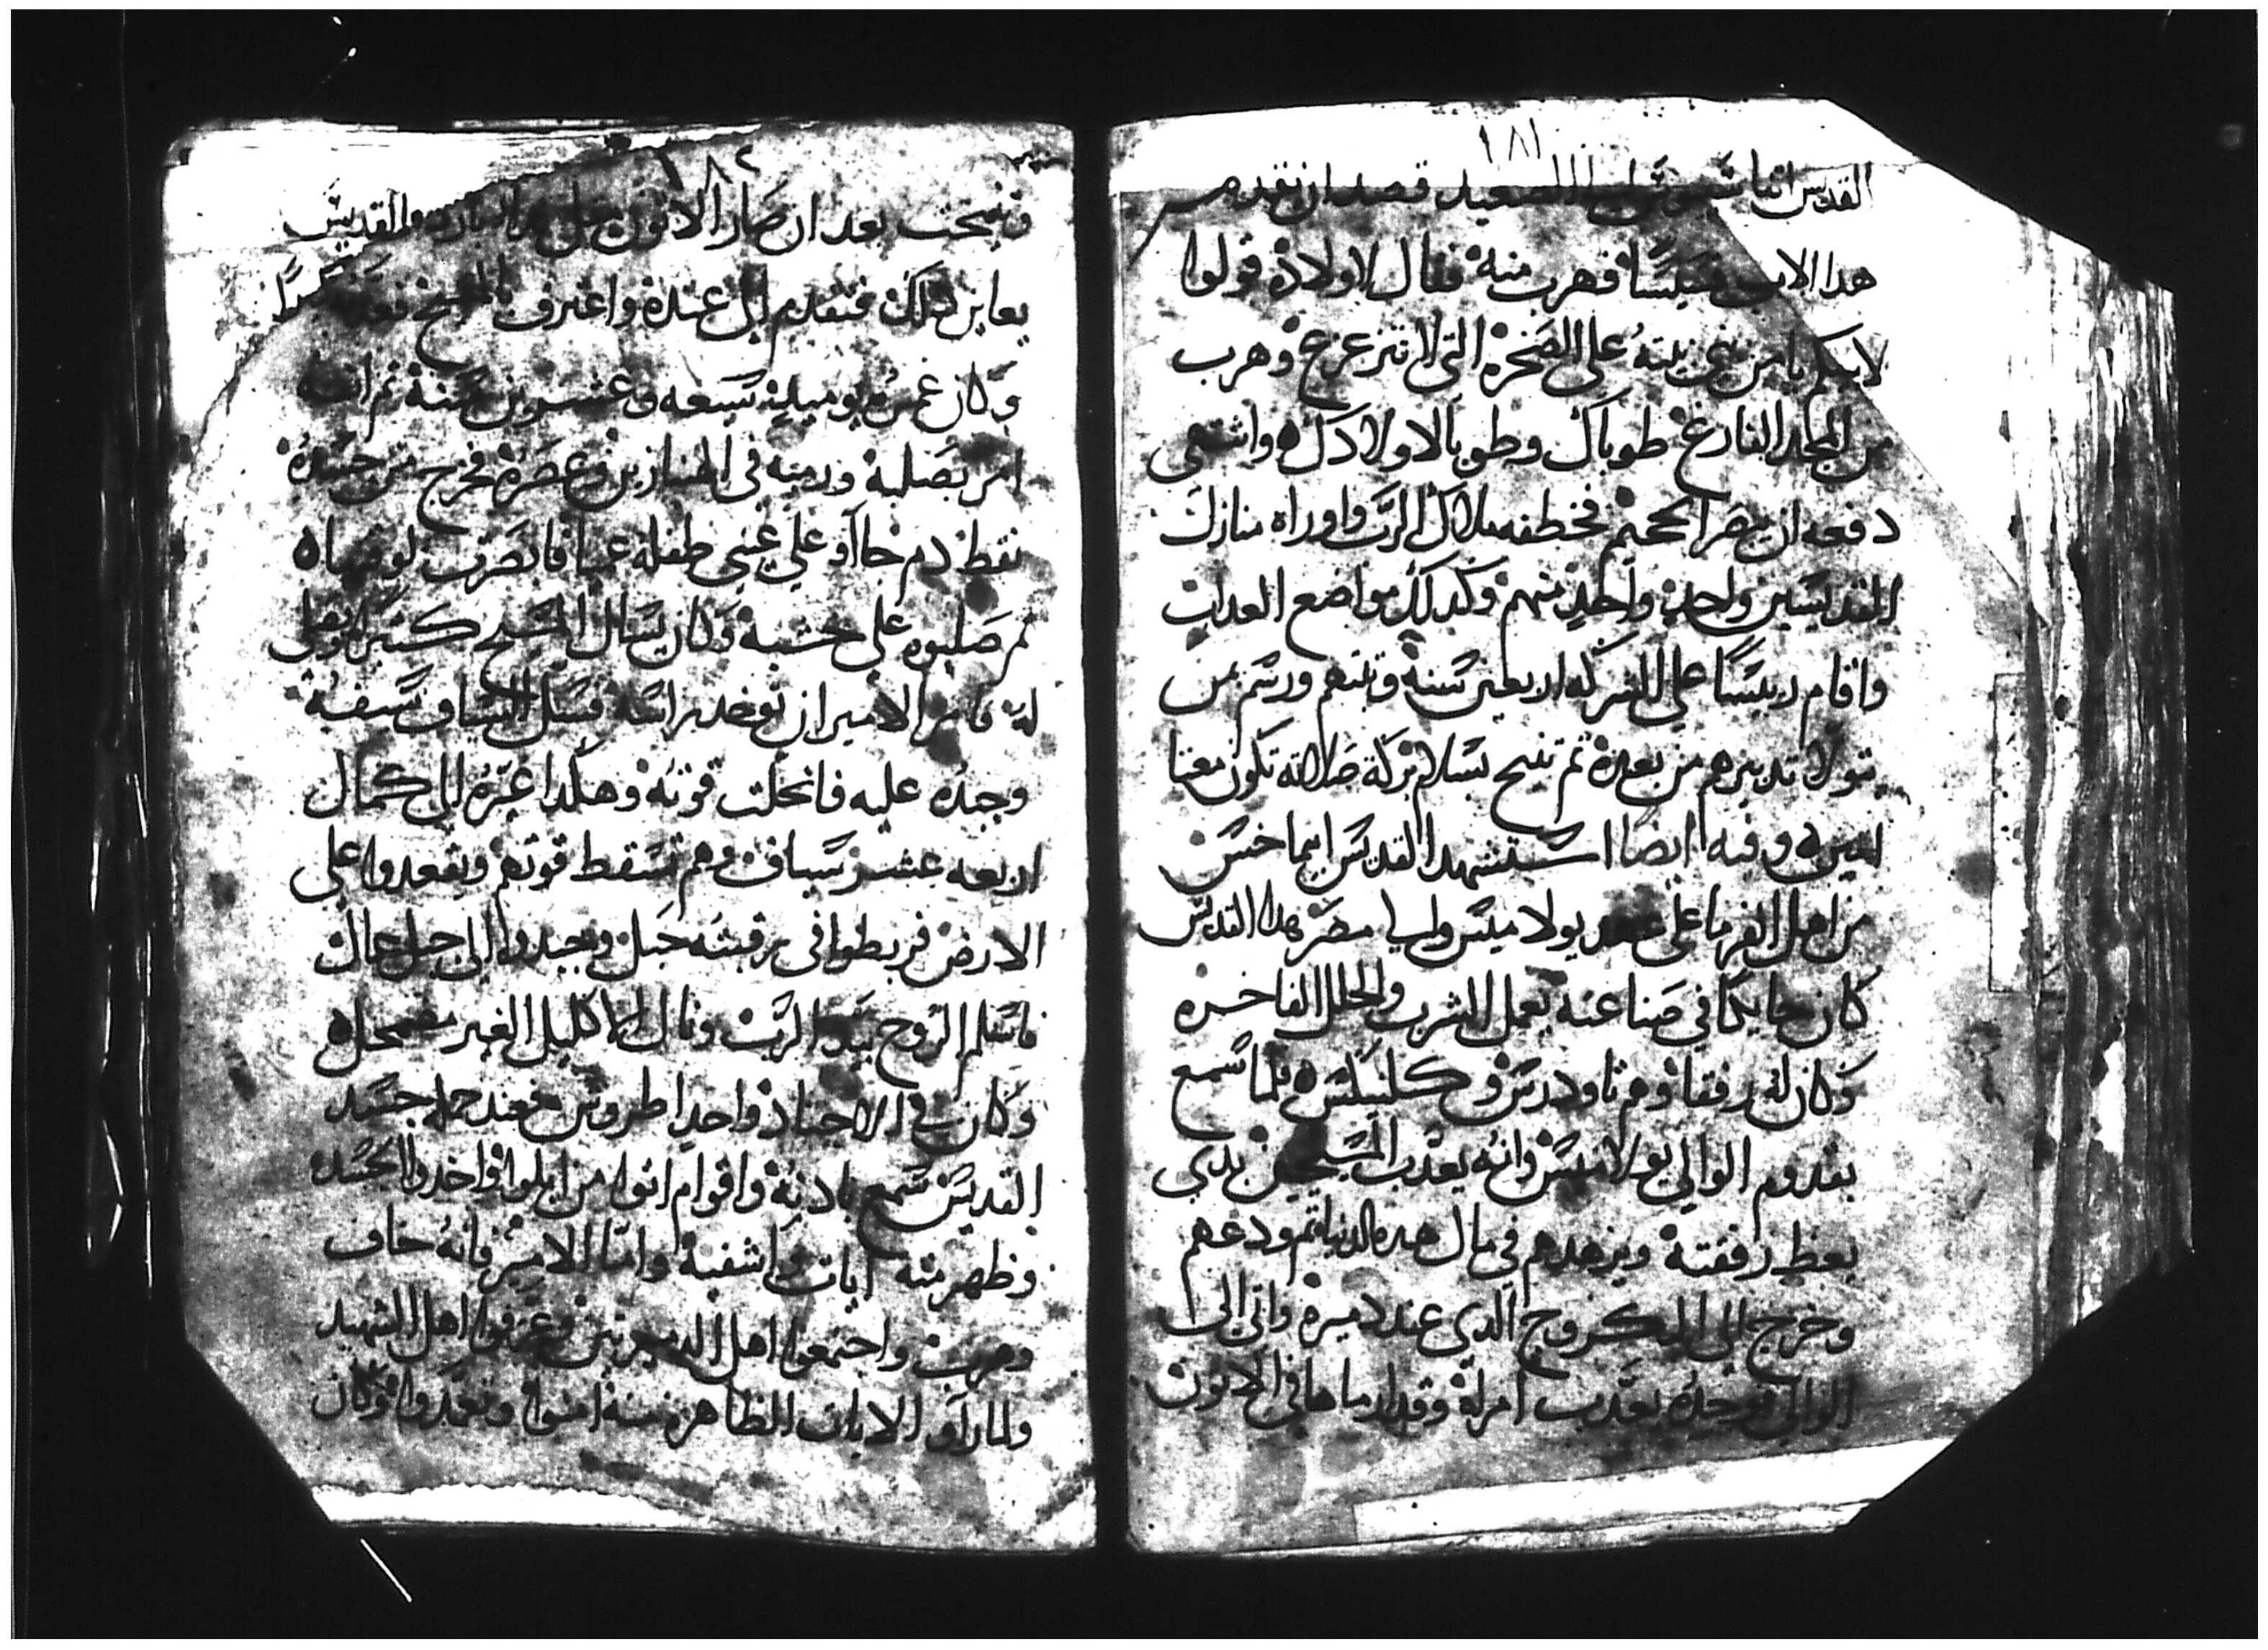 ١٨١
القديس انبا السعيد قصد ان نقدم
هدا الاب قسيسًا فهرب منه فقال لاولاده قولوا
لابيكم يا من بني بيته على الصخره التي لا تتزعزع وهرب
من المجد الفارغ طوباك وطوبا لاولادك واشتهى
دفعه ان يبصر الجحيم فخطفه ملاك الرب واوراه منازل
القديسين واحد واحد منهم وكدلك مواضع العداب
واقام رييسًا على الشركه اربعين سنه وتنبهم ورسم من
تولا تدبيرهم من بعده ثم تنيح بسلام بركة صلاته تكون معنا
امين وفيه ايضا استشهد القديس ابيماخس
من اهل الفرما على عهد بولاميس والي مصر هدا القديس
كان حايكا في صناعته يعمل الشرب والحلل الفاخره
وكان له رفقا وهم تاودرس و كلنيكس فلما سمع
بقدوم الوالي بولاميس وانه يعدب المسيحيين بدي
يعظ رفقته ويزهدهم في مال هده الدنيا ثم ودعهم
وخرج الي البكروج الدي عند دميره واتى الى
الوالي فوجده يعدب امراة وقد ارماها في الاتون
١٨٢
بعد ان صار الاتون والقديس
يعاين دلك فتقدم الى عنده واعترف
وكان عمره يوميد سبعه وعشرون سنة ثم انه
امر بصلبه ورميه في الهنبازين وعصره فخرج من جسده
نقط دم جاات على عيني طفله عميا فابصرت لوقتها
ثم صلبوه على خشبه وكان يسال المسيح كثيرًا
له فامر الامير ان توخد راسه فسل السياف سيفه
وجبده عليه فانحلت قوته وهكدا غيره الي كمال
اربعه عشر سياف وهم تسقط قوتهم ويقعدوا على
الارض فربطوا في رقبته حبل
فاسلم الروح بيد الرب ونال الاكليل الغير مضمحل
وكان في الاجناد واحد اطروش فعند حمله جسد
القديس سمع بادنه واقوام اتوا من اخدوا الجسد
وظهر منه ايات واشفيه واما الامير فانه خاف
وهرب واجتمعوا اهل وعرفوا اهل الشهيد
ولما راو الايات الظاهره منه امنوا وتعمدوا وكان